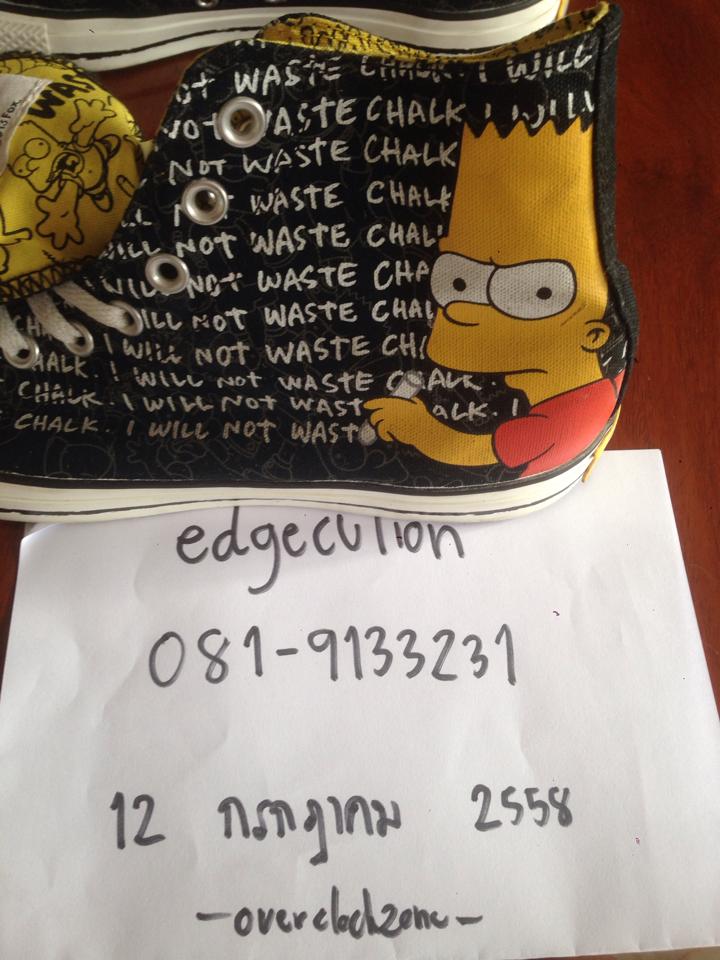 NOT WASTE CHALK. I WILL
NOT WASTE CHALK I WILL
NOT WASTE CHALK
NOT WASTE CHALK
WILL NOT WASTE CHAL
WILL NOT WASTE CHA
WILL NOT WASTE CHAL
I WILL NOT WASTE CH
HALK. I WILL NOT WASTE CHALK.
CHALK. I WILL NOT WAST ALK. I
CHALK. I WILL NOT WAST
WAS
FOX
edgecution
081-9133231
12 กรกฎาคม 2558
-overclockzone-